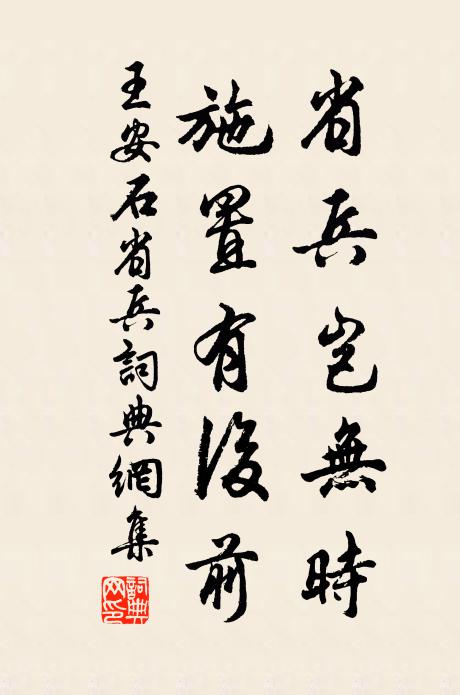 省兵岂無時
施置有後前
王安石省兵詞典網集
詞典網印